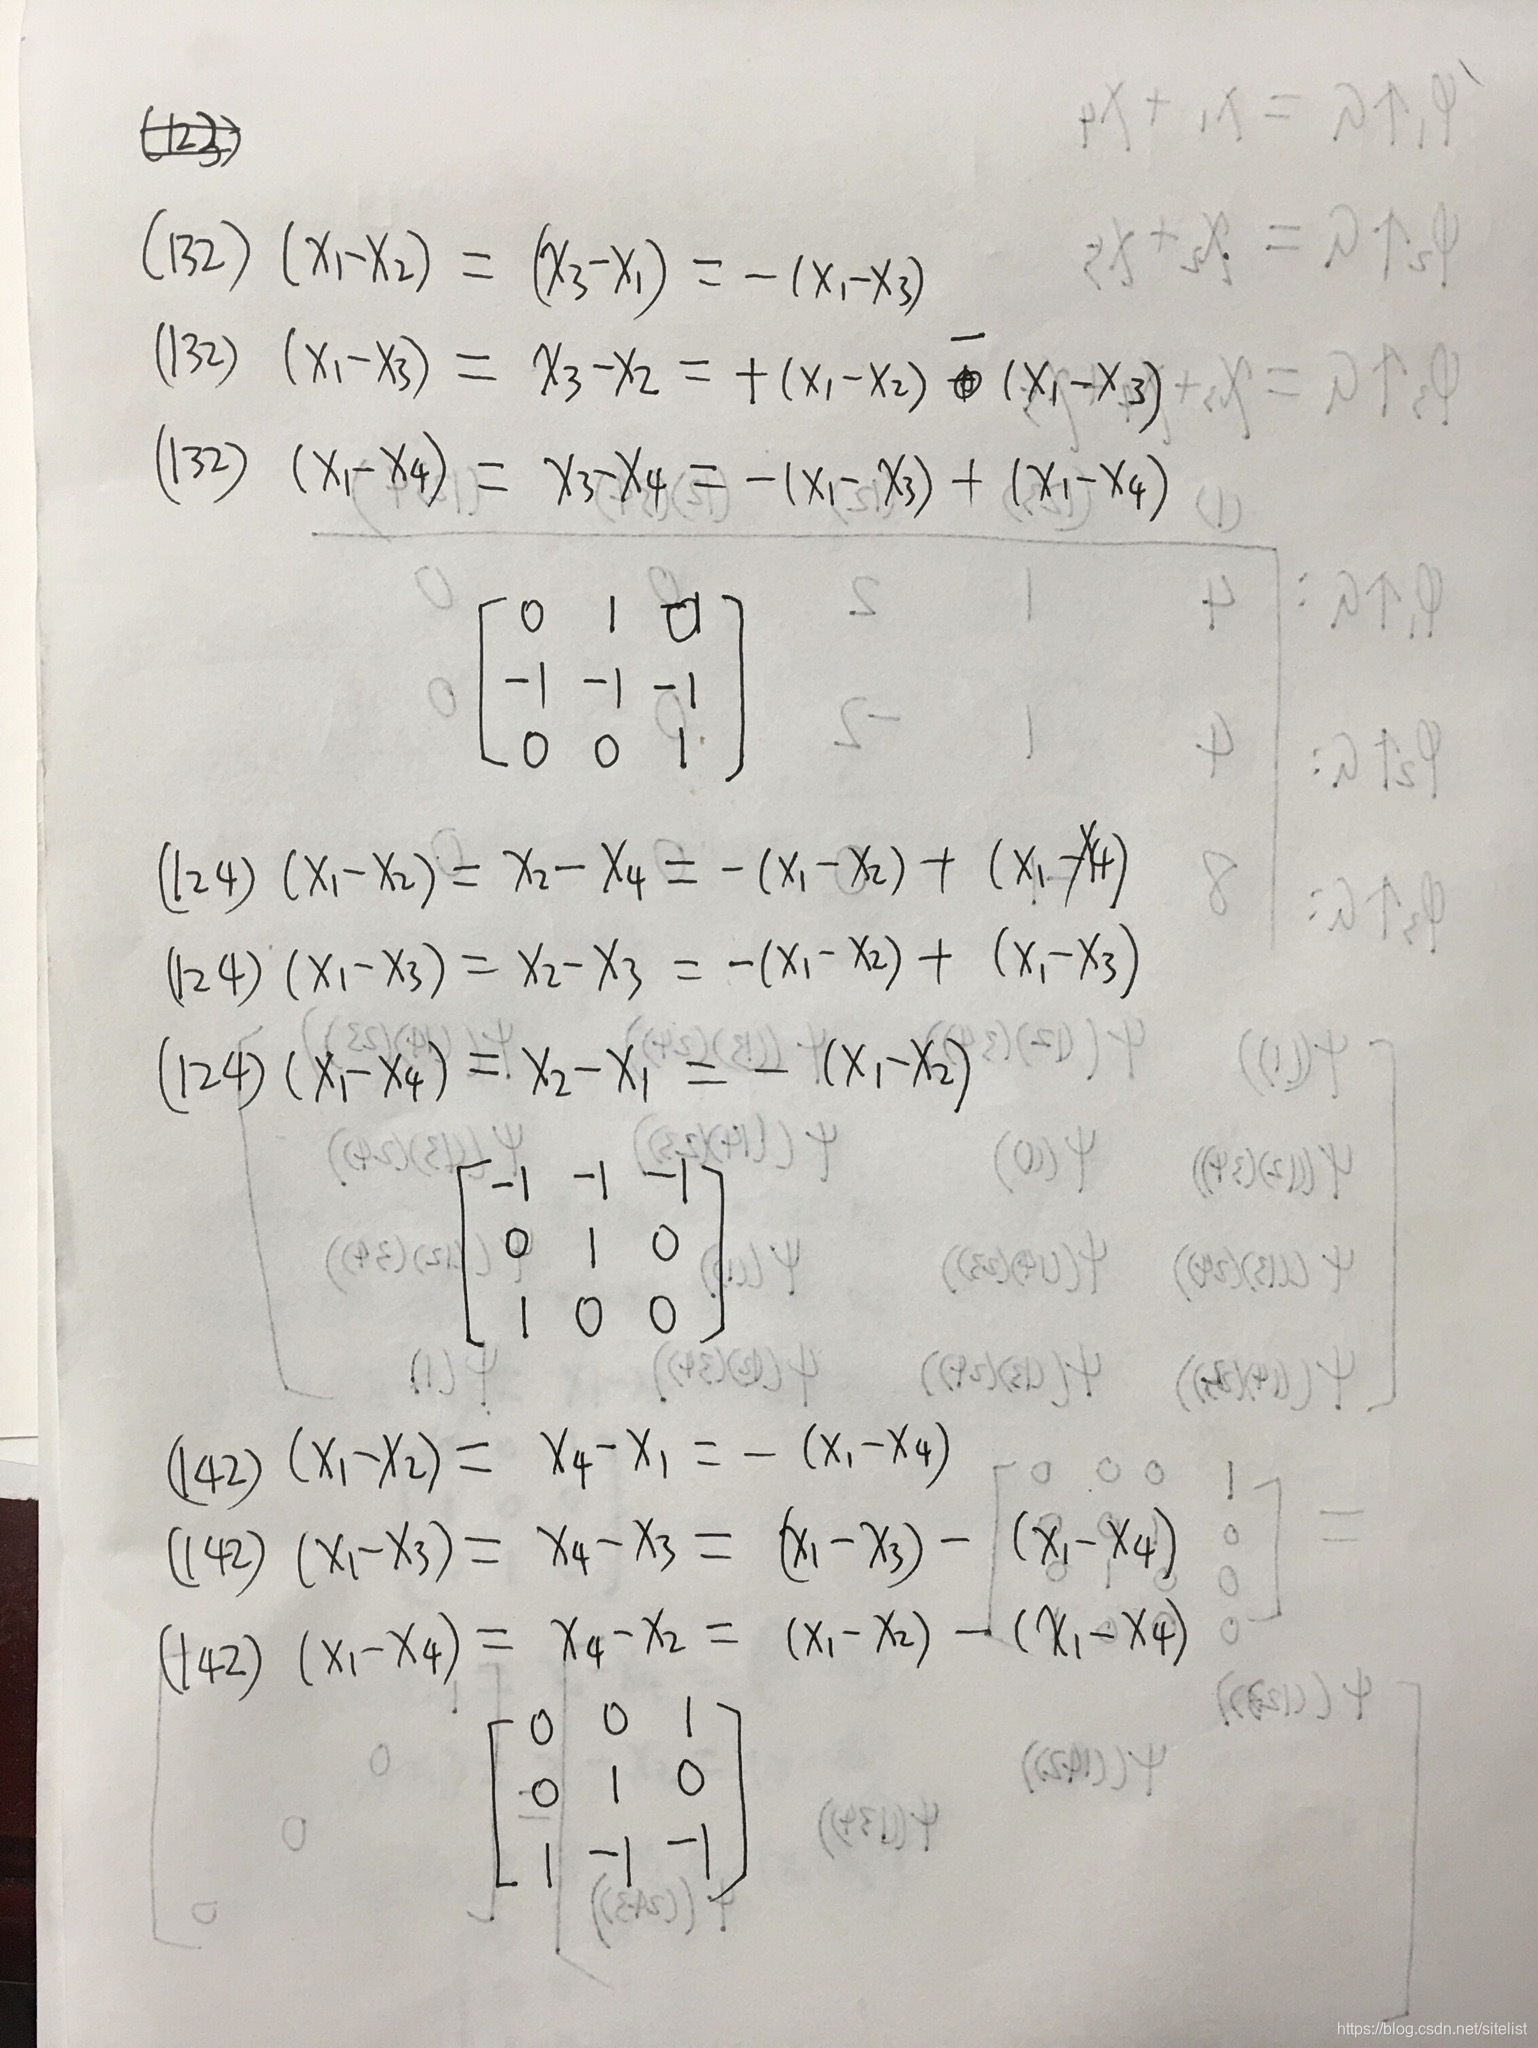 (123)
(132) (x₁-x₂) = (x₃-x₁) = -(x₁-x₃)
(132) (x₁-x₃) = x₃-x₂ = +(x₁-x₂) - (x₁-x₃)
(132) (x₁-x₄) = x₃-x₄ = -(x₁-x₃) + (x₁-x₄)
0 1 0
-1 -1 -1
0 0 1
(124) (x₁-x₂) = x₂-x₄ = -(x₁-x₂) + (x₁-x₄)
(124) (x₁-x₃) = x₂-x₃ = -(x₁-x₂) + (x₁-x₃)
(124) (x₁-x₄) = x₂-x₁ = -(x₁-x₂)
-1 -1 -1
0 1 0
1 0 0
(142) (x₁-x₂) = x₄-x₁ = -(x₁-x₄)
(142) (x₁-x₃) = x₄-x₃ = (x₁-x₃) - (x₁-x₄)
(142) (x₁-x₄) = x₄-x₂ = (x₁-x₂) - (x₁-x₄)
0 0 1
0 1 0
1 -1 -1
https://blog.csdn.net/sitelist